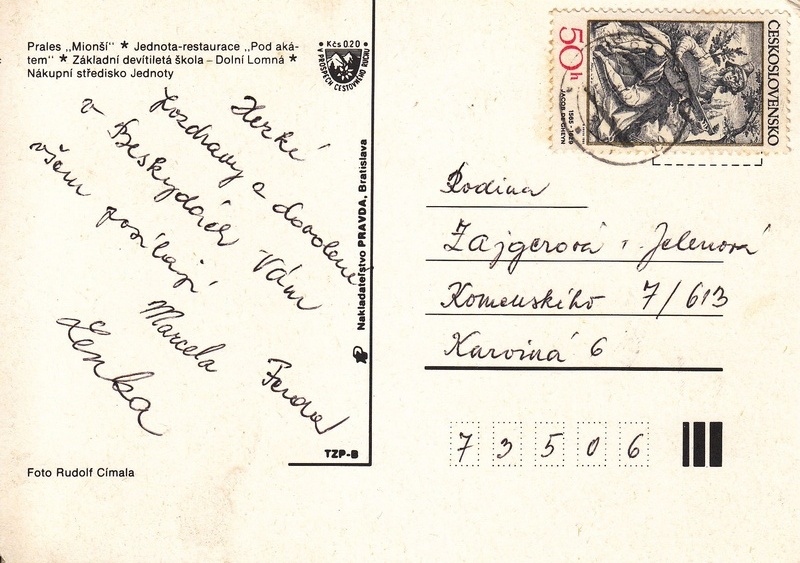 Prales „Mionší" * Jednota-restaurace „Pod aká-
tem" * Základní devítiletá škola – Dolní Lomná *
Nákupní středisko Jednoty
Kčs 0.20
V PROSPĚCH CESTOVNÉHO RUCHU
ČESKOSLOVENSKO
50h
1565 1629
JACOB DE GHEYN
Hezké
pozdravy z dovolené
v Beskydách Vám
všem posílají
Marcela Ferda
Lenka
Nakladateľstvo PRAVDA, Bratislava
TZP-B
Foto Rudolf Címala
Rodina
Zajgerová i Jelenová
Komenského 7/613
Karviná 6
7 3 5 0 6